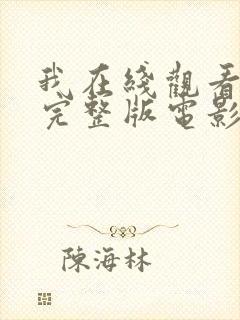 我在綫觀看
完整版電影
陳海林